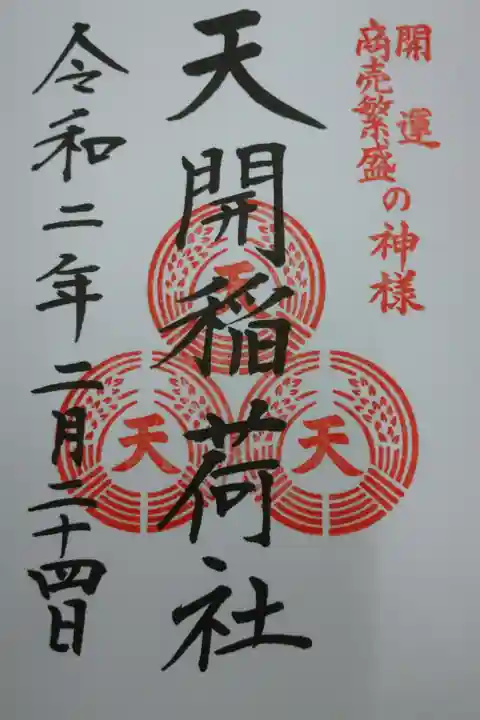 開運
商売繁盛の神様
天開稲荷社
天
天
天
令和二年二月二十四日